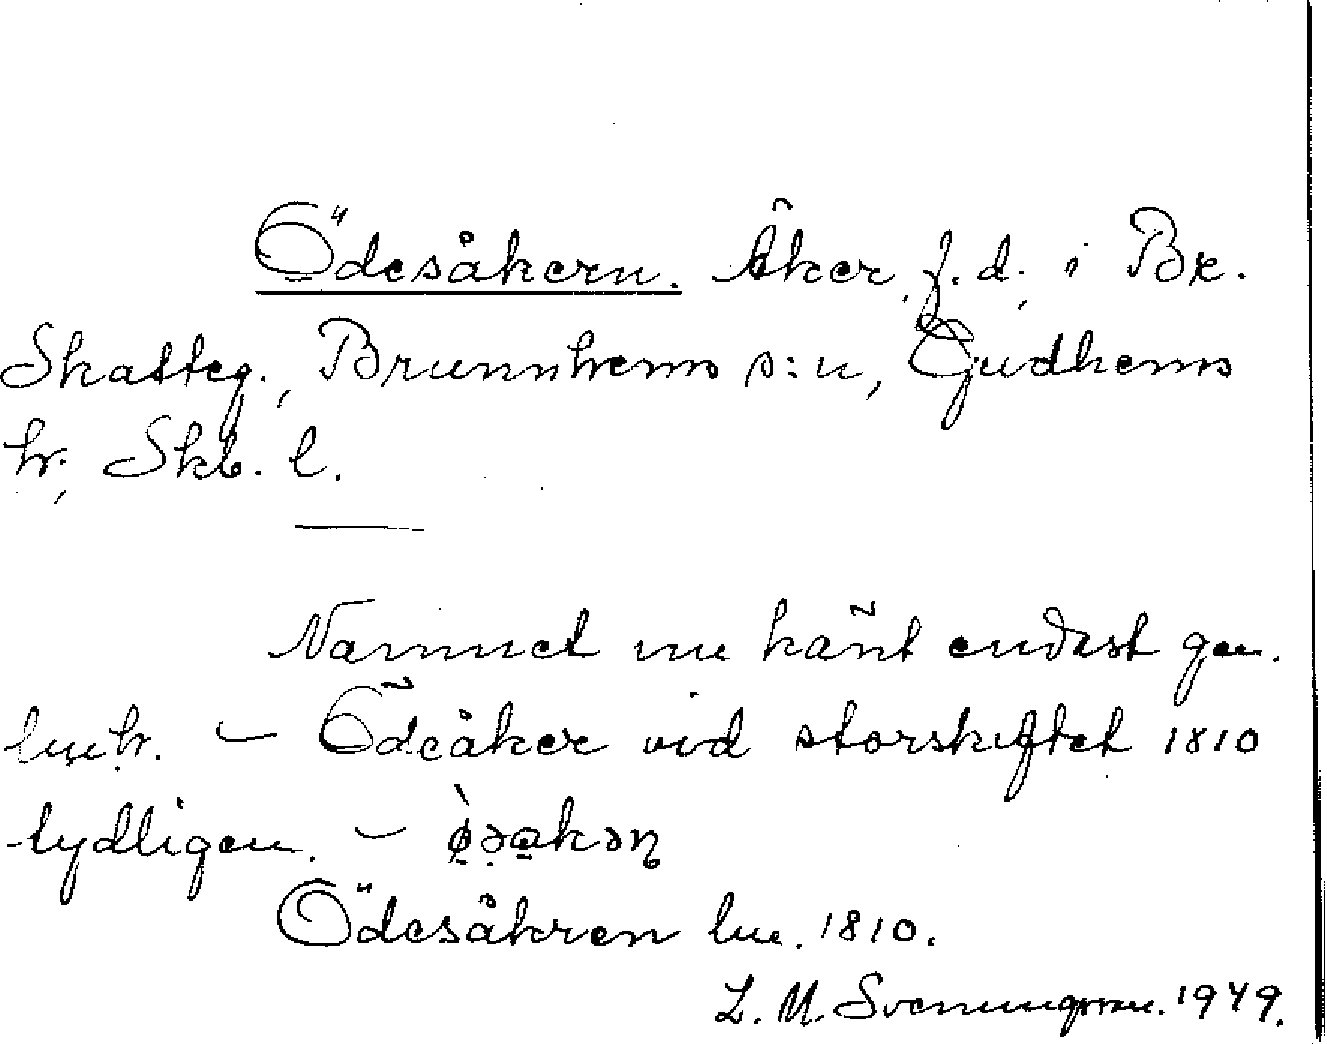 Ödesåkern. Åker, f.d., i Br.
Skatteg., Brunnhems s:n, Gudhems
hr, Skb. l.
Namnet nu känt endast gen.
lmtr. – Ödeåker vid storskiftet 1810
tydligen. –
Ödesåkren lm. 1810.
L. M. Svenungsson. 1949.